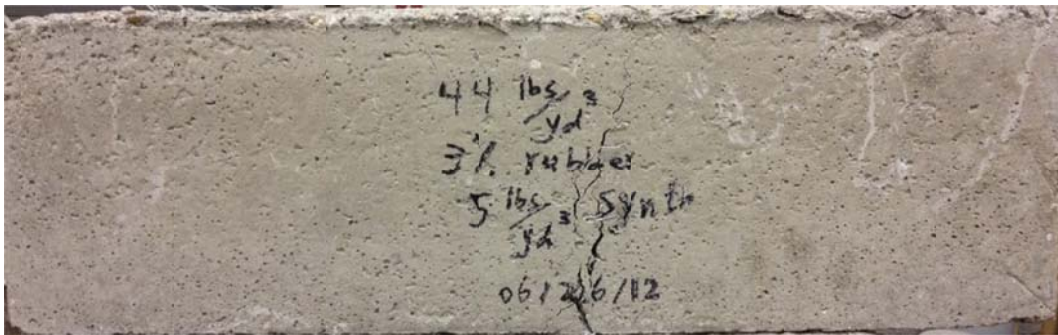 44 lbs/yd³
3% rubber
5 lbs/yd³ Synth
06/26/12